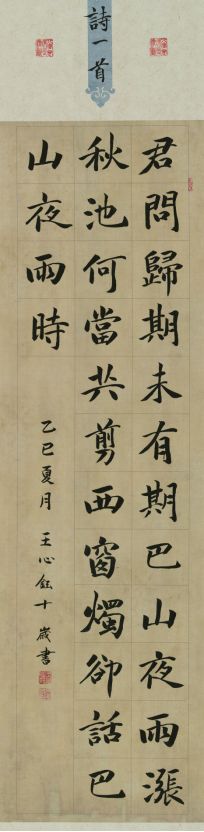 詩一首
君問歸期未有期巴山夜雨漲
秋池何當共剪西窗燭卻話巴
山夜雨時
乙巳夏月 王心鈺十歲書